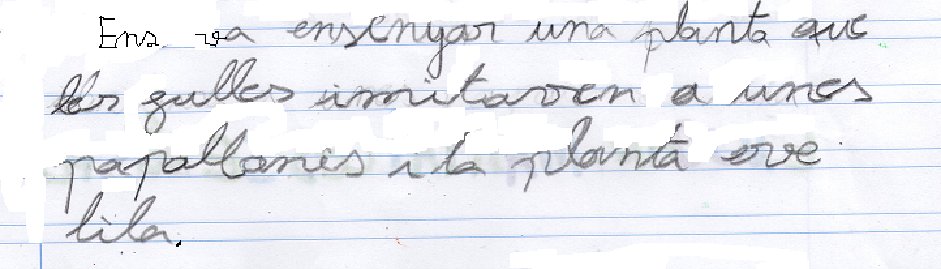 Ens va ensenyar una planta que
les gulles imitaven a unes
papallones i la planta ere
lila.